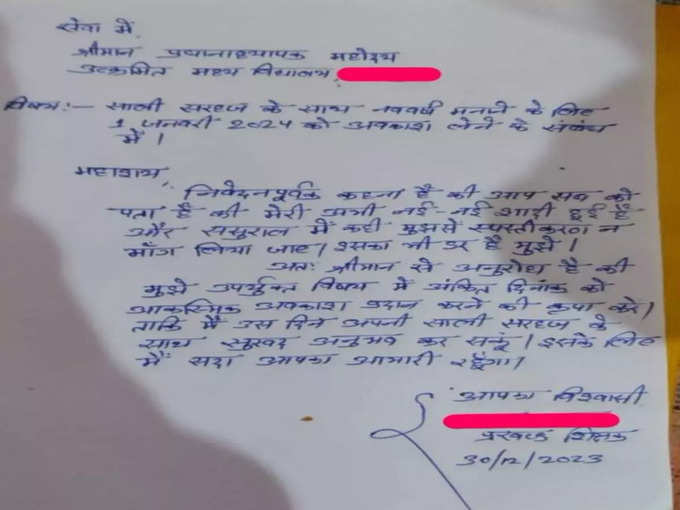 सेवा में,
श्रीमान प्रधानाध्यापक महोदय
उत्क्रमित मध्य विद्यालय
विषय:- साली सरहज के साथ नववर्ष मनाने के लिए
1 जनवरी 2024 को अवकाश लेने के संबंध
में।
महाशय,
निवेदनपूर्वक कहना है की आप सब को
पता है की मेरी अभी नई-नई शादी हुई है
और ससुराल में कही मुझसे स्पस्टीकरण न
माँग लिया जाए। इसका भी डर है मुझे।
अतः श्रीमान से अनुरोध है की
मुझे उपर्युक्त विषय में अंकित दिनांक को
आकस्मिक अवकाश प्रदान करने की कृपा करे।
ताकि मैं उस दिन अपनी साली सरहज के
साथ सुखद अनुभव कर सकूं। इसके लिए
मैं सदा आपका आभारी रहूँगा।
आपका विश्वासी
प्रखण्ड शिक्षक
30/12/2023